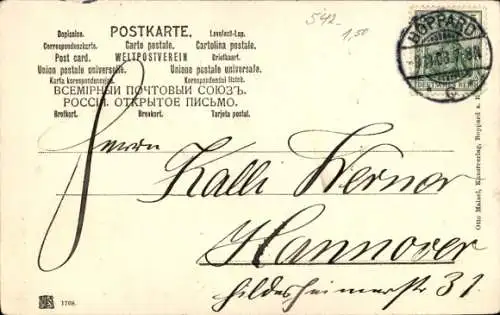 542
1,50
Dopisnice. POSTKARTE. Levelező-Lap.
Correspondenzkarte. Carte postale. Cartolina postale.
Post card. WELTPOSTVEREIN Briefkaart.
Union postale universelle. Unione postale universale.
Karta korespondencyjna. Korrespondenční lístek.
ВСЕМІРНЫЙ ПОЧТОВЫЙ СОЮЗЪ.
РОССІЯ. ОТКРЫТОЕ ПИСЬМО.
Brefkort. Brevkort. Tarjeta postal.
BOPPARD
DEUTSCHES REICH
Herrn
Kalli Werner
Hannover
Hildesheimerstr 31.
Otto Maisel, Kunstverlag, Boppard a.
1768.